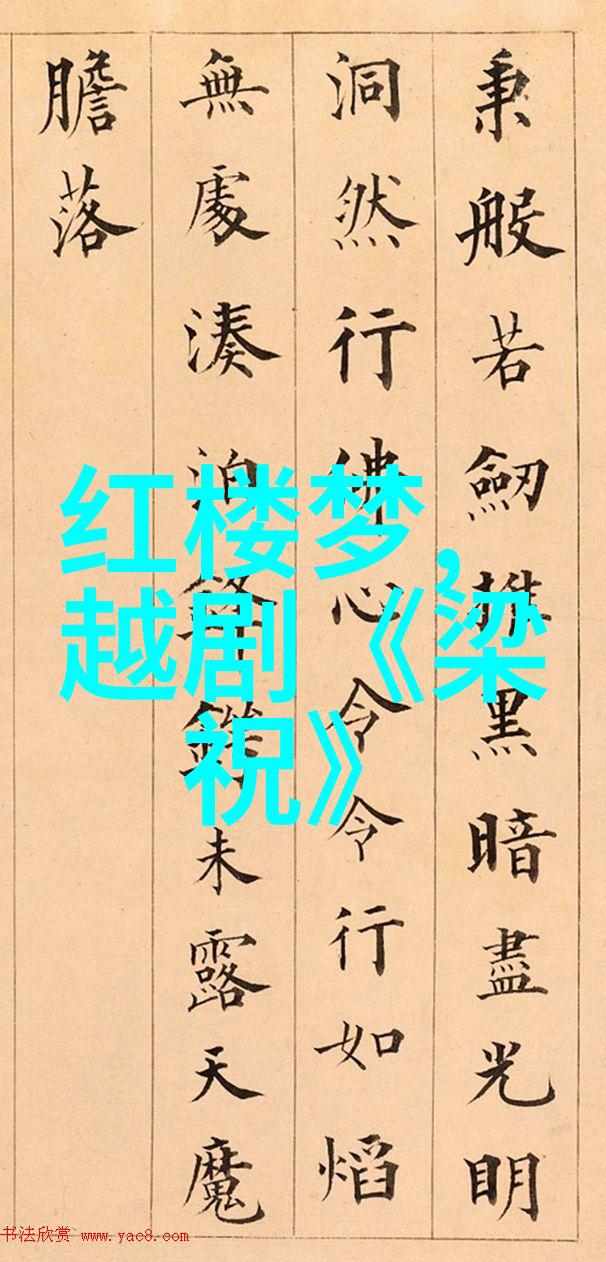 秉般若劒推黑暗盡光明
洞然行佛心令令行如熖
無處湊泊鋒鋩未露天魔
膽落
红楼梦，
越剧《梁
祝》
书法欣赏 www.yac8.com